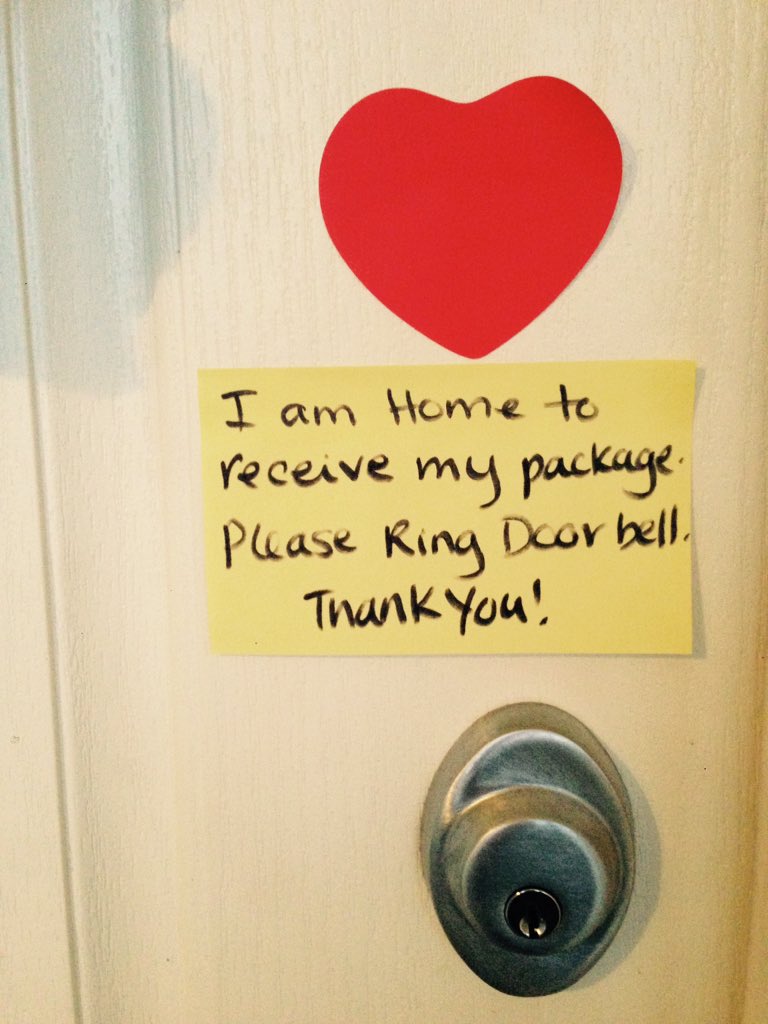 I am Home to
receive my package.
Please Ring Door bell.
Thank You!